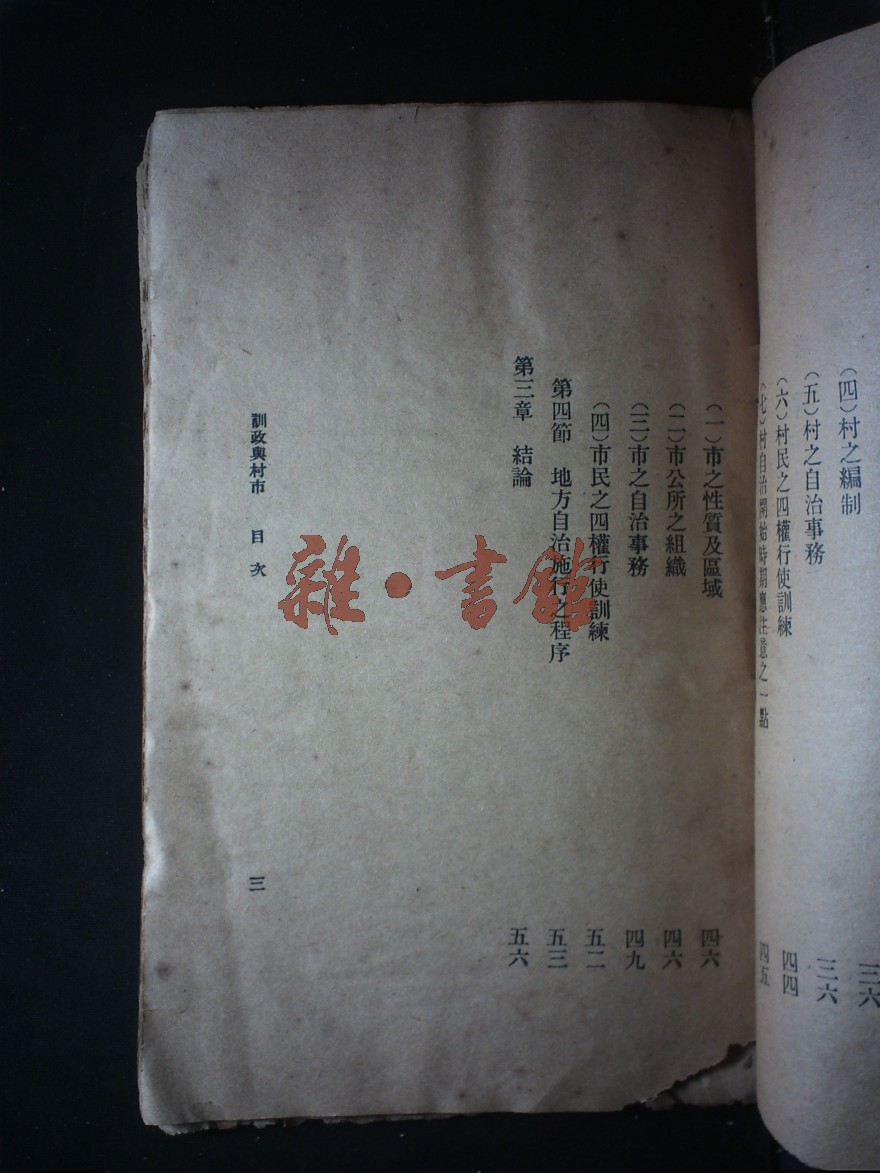 （四）村之編制 三六
（五）村之自治事務 三六
（六）村民之四權行使訓練 四四
（七）村自治開始時期應注意之一點 四五
（一）市之性質及區域 四六
（二）市公所之組織 四六
（三）市之自治事務 四九
（四）市民之四權行使訓練 五二
第四節 地方自治施行之程序 五三
第三章 結論 五六
訓政與村市 目次 三
雜·書館